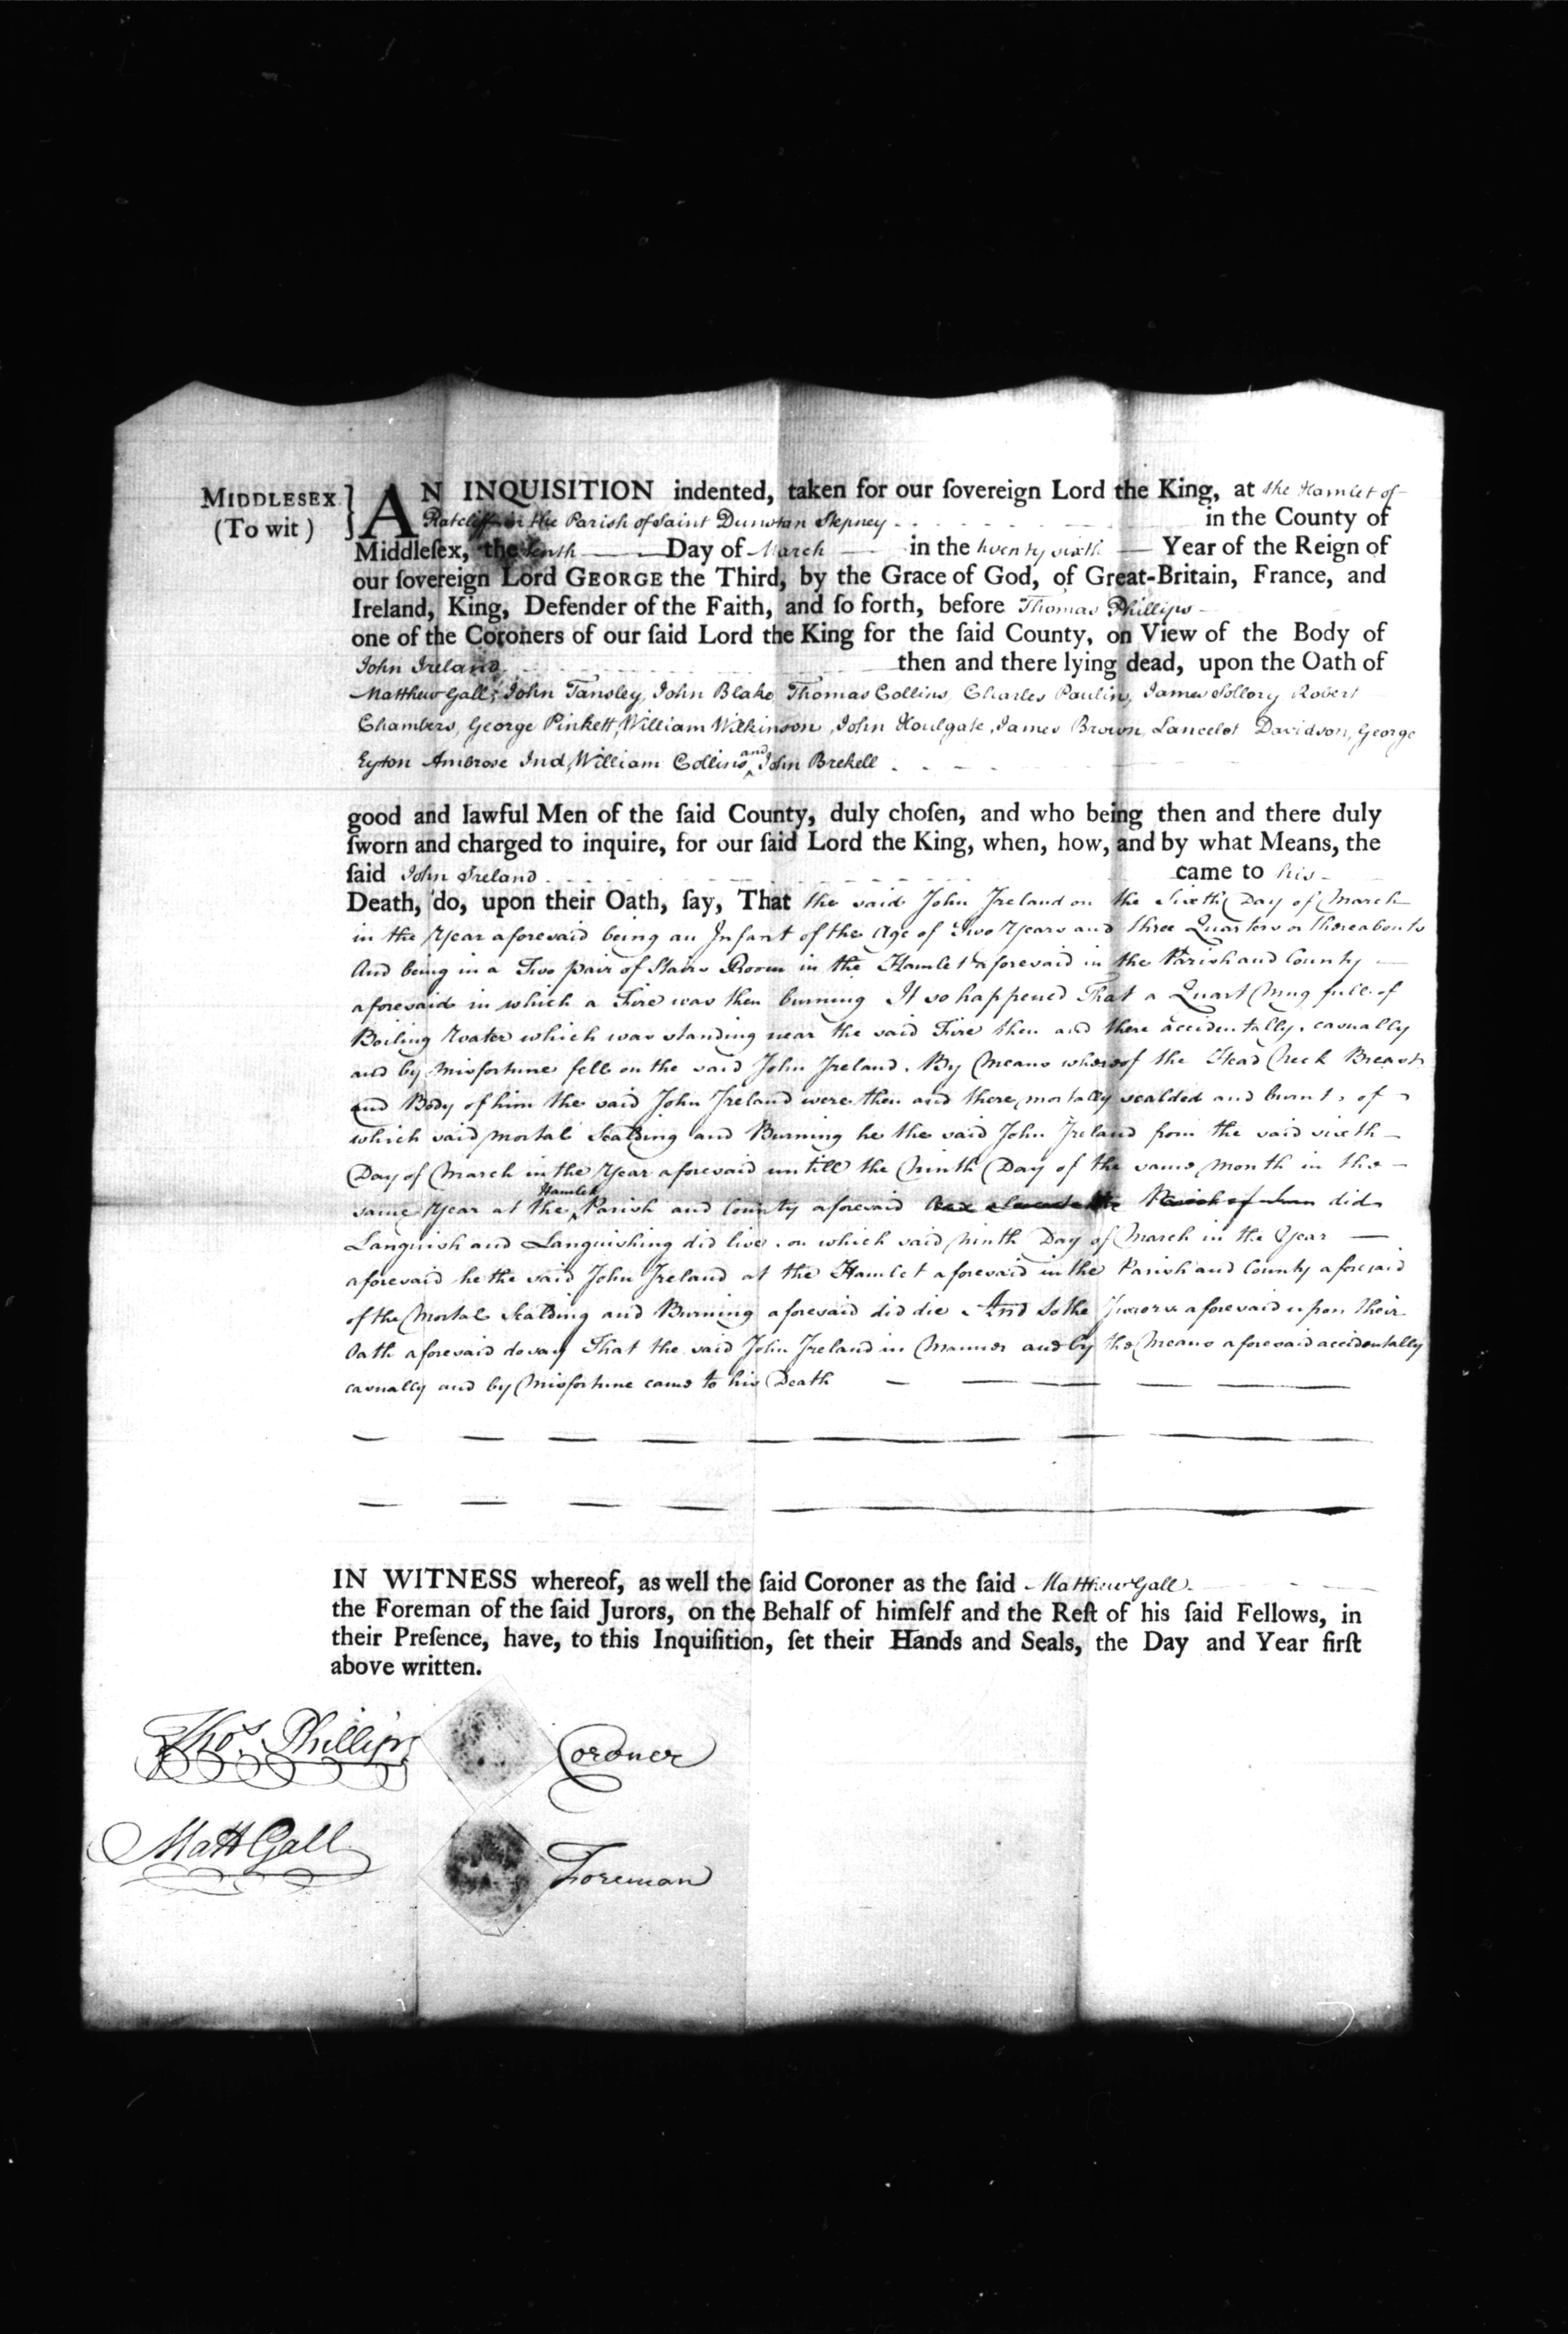 MIDDLESEX
(To wit)
AN INQUISITION indented, taken for our ſovereign Lord the King, at the Hamlet of
Ratcliff in the Parish of Saint Dunstan Stepney in the County of
Middleſex, the tenth Day of March in the twenty sixth Year of the Reign of
our ſovereign Lord GEORGE the Third, by the Grace of God, of Great-Britain, France, and
Ireland, King, Defender of the Faith, and ſo forth, before Thomas Phillips
one of the Coroners of our ſaid Lord the King for the ſaid County, on View of the Body of
John Ireland then and there lying dead, upon the Oath of
Matthew Gall, John Tansley, John Blake Thomas Collins, Charles Paulin, James Sollory Robert
Chambers, George Pinkett, William Wilkinson, John Houlgate, James Brown, Lancelot Davidson, George
Eyton Ambrose Ind, William Collins, and John Brekell
good and lawful Men of the ſaid County, duly choſen, and who being then and there duly
ſworn and charged to inquire, for our ſaid Lord the King, when, how, and by what Means, the
ſaid John Ireland came to his
Death, do, upon their Oath, ſay, That the said John Ireland on the Sixth Day of March
in the Year aforesaid being an Infant of the Age of Two Years and three Quarters or thereabouts
And being in a Two pair of Stairs Room in the Hamlet aforesaid in the Parish and County
aforesaid in which a Fire was then burning It so happened That a Quart Mug full of
Boiling Water which was standing near the said Fire then and there accidentally, casually
and by Misfortune fell on the said John Ireland. By Means whereof the Head Neck Breast
and Body of him the said John Ireland were then and there mortally scalded and burnt, of
which said mortal Scalding and Burning he the said John Ireland from the said sixth
Day of March in the Year aforesaid untill the Ninth Day of the same Month in the
same Year at the Hamlet Parish and County aforesaid did
Languish and Languishing did live, on which said Ninth Day of March in the Year
aforesaid he the said John Ireland at the Hamlet aforesaid in the Parish and County aforesaid
of the Mortal Scalding and Burning aforesaid did die And So the Jurors aforesaid upon their
Oath aforesaid do say That the said John Ireland in Manner and by the Means aforesaid accidentally
casually and by Misfortune came to his Death
IN WITNESS whereof, as well the ſaid Coroner as the ſaid Matthew Gall
the Foreman of the ſaid Jurors, on the Behalf of himſelf and the Reſt of his ſaid Fellows, in
their Preſence, have, to this Inquiſition, ſet their Hands and Seals, the Day and Year firſt
above written.
Thos. Phillips Coroner
Matt Gall Foreman